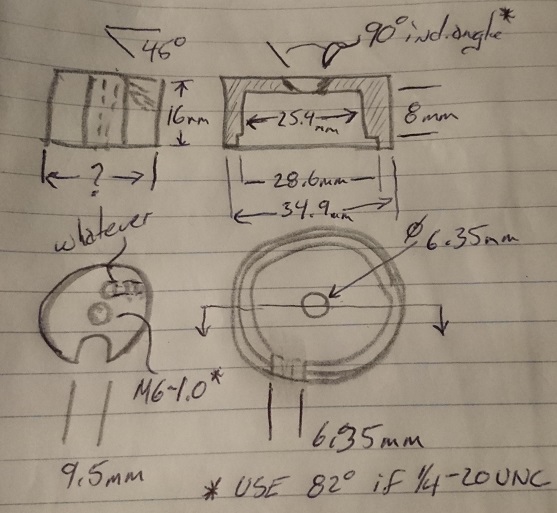 45°
90° incl. angle*
16mm
25.4mm
8mm
?
28.6mm
34.9mm
whatever
Ø 6.35mm
M6-1.0*
9.5mm
6.35mm
* USE 82° if 1/4-20 UNC